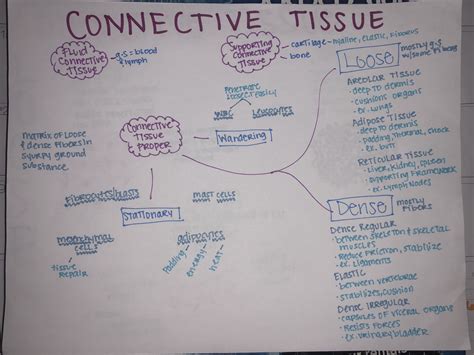 CONNECTIVE TISSUE
Fluid
Connective
Tissue
G.S = blood
lymph
Supporting Connective
Tissue
cartilage - hyaline, elastic, fibrous
bone
Loose
mostly G.S
w/some fibers
Areolar Tissue
- deep to dermis
- cushions organs
- ex. lungs
Adipose Tissue
- deep to dermis
- padding, thermal, shock
- ex. butt
Reticular Tissue
- liver, kidney, spleen
- supporting framework
- ex. lymph nodes
penetrate
tissue easily
WBC
leukocytes
Wandering
Connective
Tissue
Proper
matrix of loose
& dense fibers in
syurpy ground
substance
fibrocytes/blasts
mast cells
Stationary
mesenchymal
cells
tissue
repair
adipocytes
padding
energy
heat
Dense
mostly
fibers
Dense Regular
- between skeleton & skeletal
muscles
- reduce friction, stabilize
- ex. ligaments
Elastic
- between vertebrae
- stabilizes, cushion
Dense Irregular
- capsules of viceral organs
- Resists forces
- ex: urinary bladder